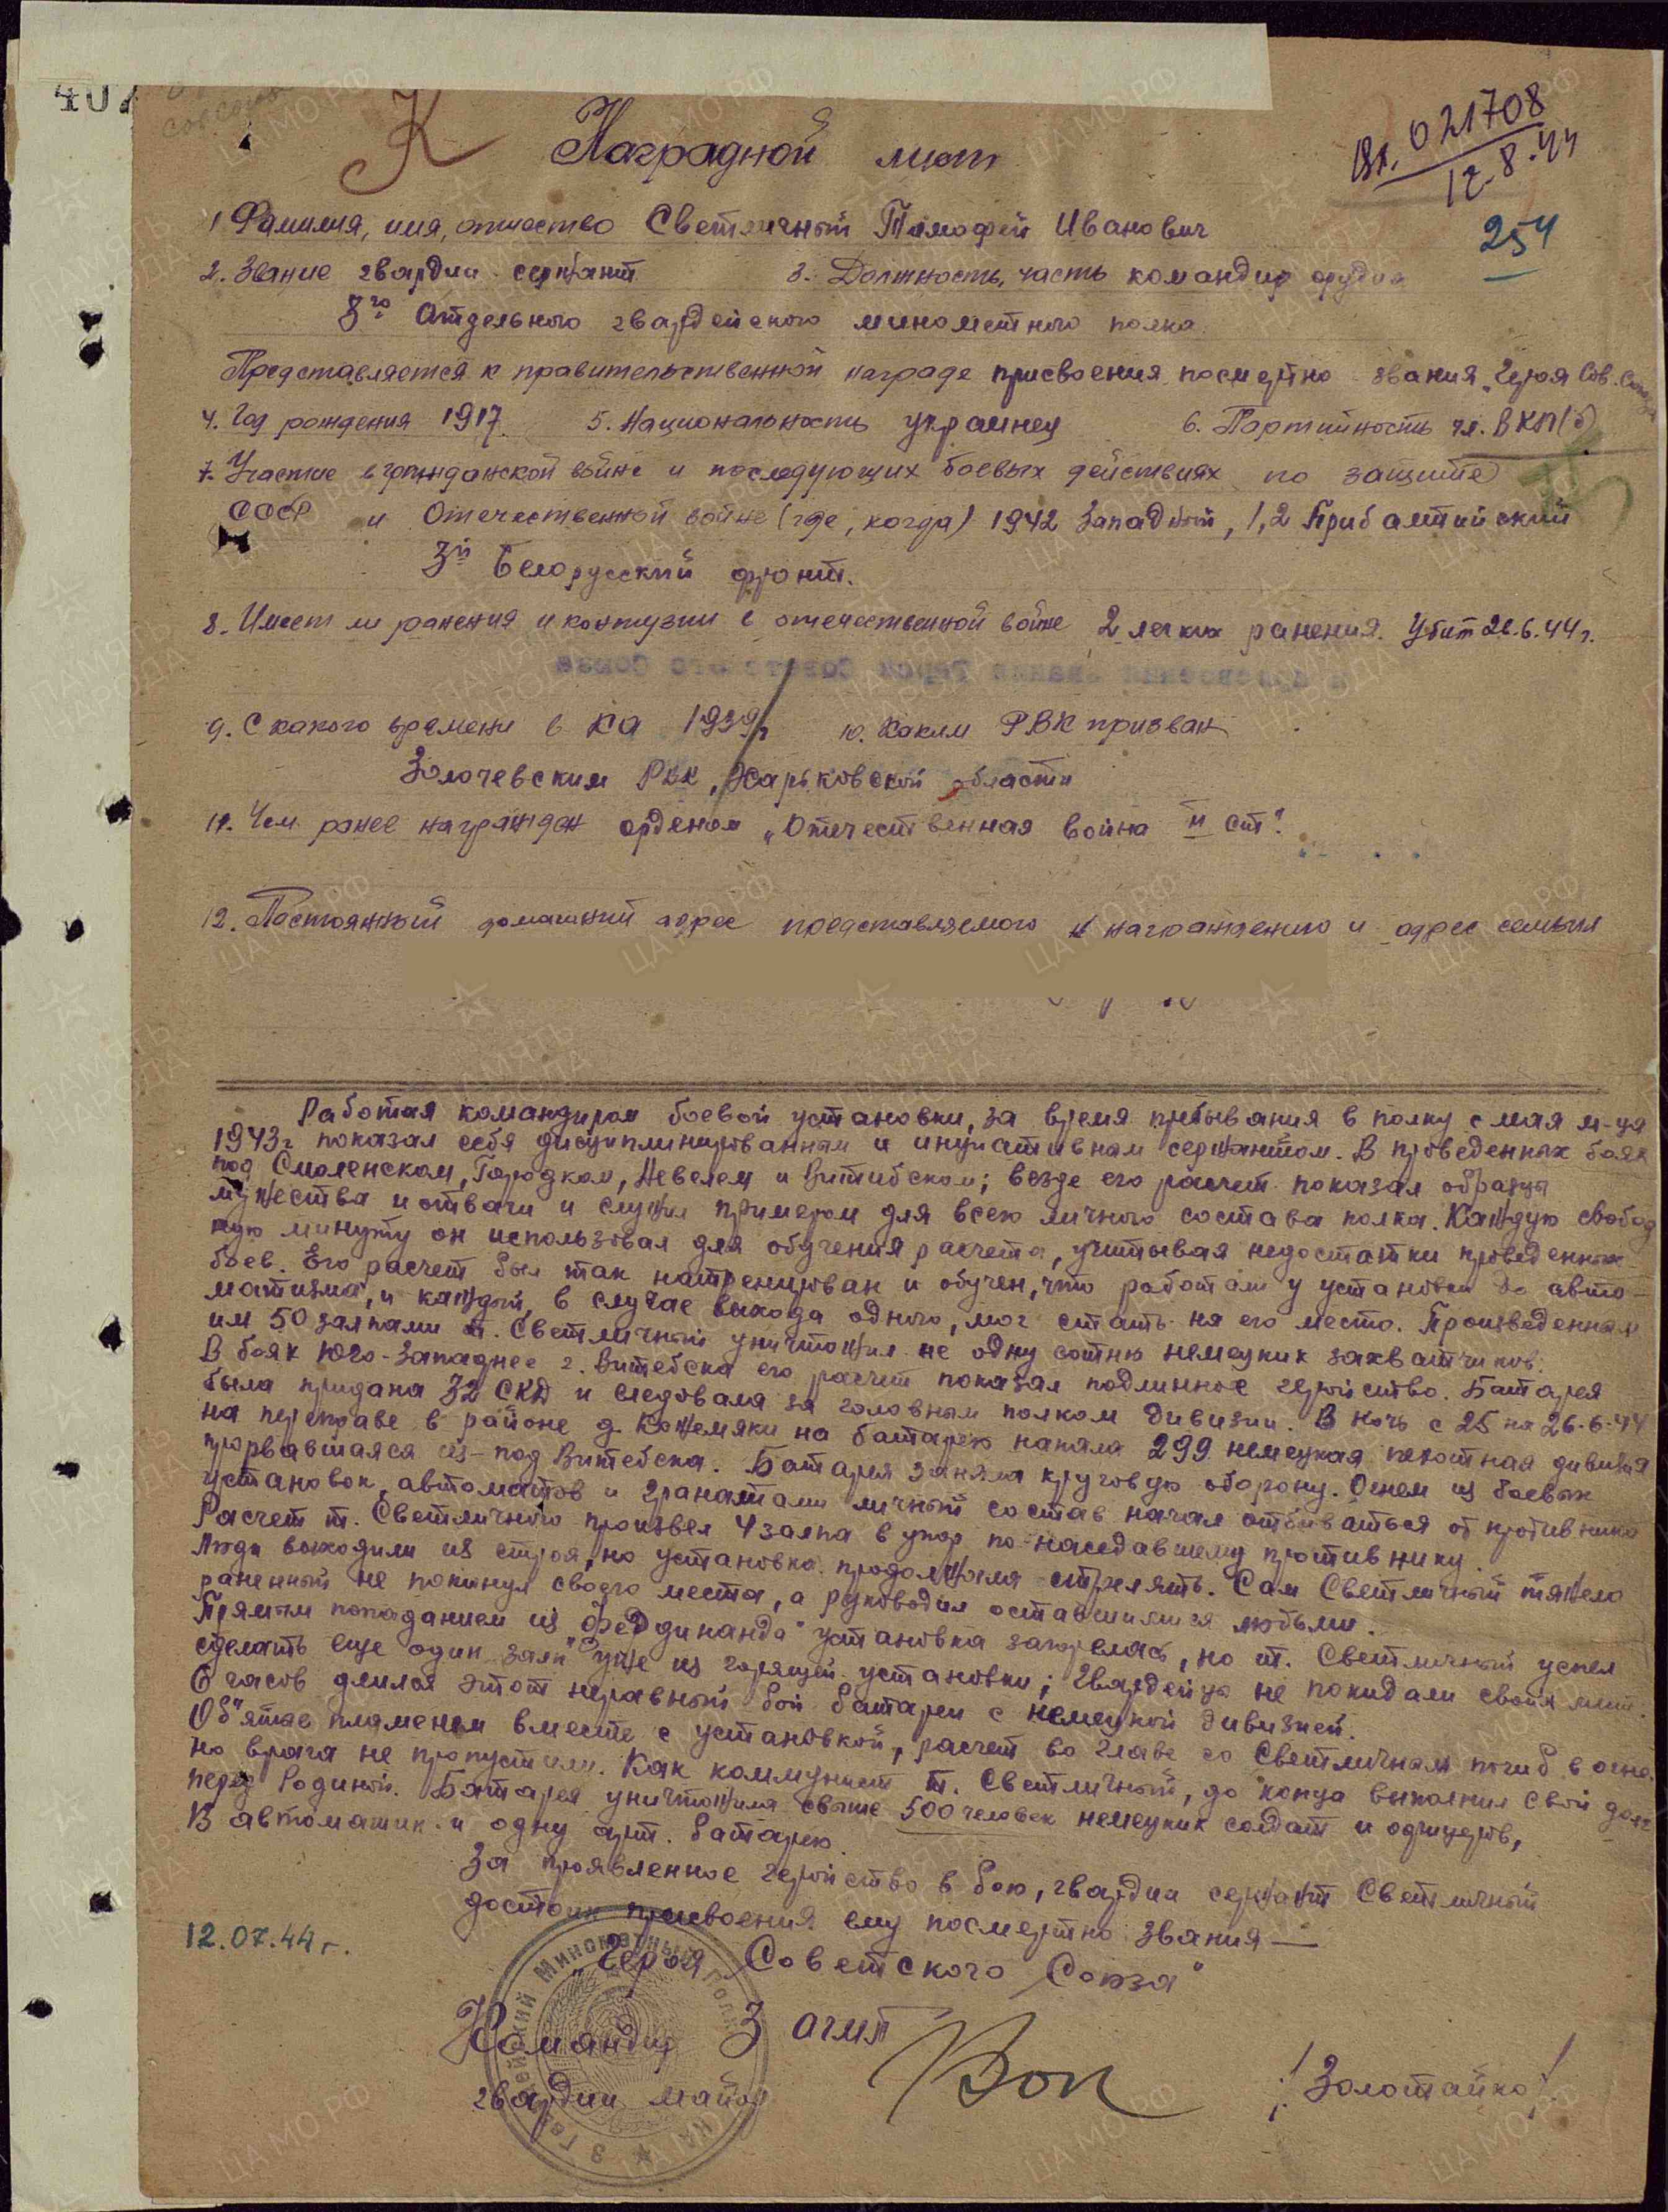 407
К
Наградной лист
Вх. 021708
12.8.44
254
1 Фамилия, имя, отчество Светличный Тимофей Иванович
2. Звание гвардии сержант 3. Должность, часть командир орудия
3го Отдельного гвардейского минометного полка
Представляется к правительственной награде присвоения посмертно звания „Героя Сов. Союза
4. Год рождения 1917 5. Национальность украинец 6. Партийность чл. ВКП(б)
7. Участие в гражданской войне и последующих боевых действиях по защите
СССР и Отечественной войне (где, когда) 1942 Западный, 1,2 Прибалтийский
3й Белорусский фронт.
8. Имеет ли ранения и контузии в отечественной войне 2 легких ранения. Убит 26.6.44г.
9. С какого времени в КА 1939г 10. Каким РВК призван
Золочевским РВК, Харьковской области
11. Чем ранее награжден орденом „Отечественная война II ст".
12. Постоянный домашний адрес представляемого к награждению и адрес семьи
Работая командиром боевой установки, за время пребывания в полку с мая м-ца
1943г показал себя дисциплинированным и инициативным сержантом. В проведенных боях
под Смоленском, Городком, Невелем и Витебском; везде его расчет показал образцы
мужества и отваги и служил примером для всего личного состава полка. Каждую свобод
ную минуту он использовал для обучения расчета, учитывая недостатки проведенных
боев. Его расчет был так натренирован и обучен, что работали у установки до авто-
матизма, и каждый, в случае выхода одного, мог стать на его место. Произведенным
им 50 залпами т. Светличный уничтожил не одну сотню немецких захватчиков.
В боях Юго-Западнее г. Витебска его расчет показал подлинное геройство. Батарея
была придана 32 СКД и следовала за головным полком дивизии. В ночь с 25 на 26.6.44
на переправе в районе д. Кожемяки на батарею напала 299 немецкая пехотная дивизия
прорвавшаяся из-под Витебска. Батарея заняла круговую оборону. Огнем из боевых
установок, автоматов и гранатами личный состав начал отбиваться от противника
Расчет т. Светличного произвел 4 залпа в упор по наседавшему противнику.
Люди выходили из строя, но установка продолжала стрелять. Сам Светличный тяжело
раненный не покинул своего места, а руководил оставшимися людьми.
Прямым попаданием из „Фердинанда" установка загорелась, но т. Светличный успел
сделать еще один залп уже из горящей установки; Гвардейцы не покидали своих мест.
6 часов длился этот неравный бой батареи с немецкой дивизией.
Об'ятые пламенем вместе с установкой, расчет во главе со Светличным погиб в огне.
но врага не пропустили. Как коммунист т. Светличный, до конца выполнил свой долг
перед Родиной. Батарея уничтожила свыше 500 человек немецких солдат и офицеров,
13 автомашин и одну арт. батарею.
За проявленное геройство в бою, гвардии сержант Светличный
достоин присвоения ему посмертно звания —
„Героя Советского Союза"
12.07.44г.
Командир 3 огмп
гвардии майор
/Золотайко/